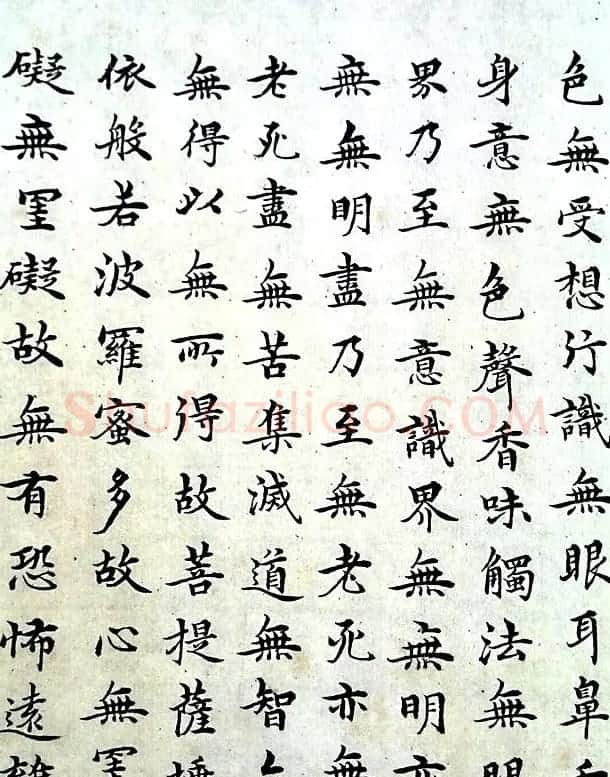 色無受想行識無眼耳鼻舌
身意無色聲香味觸法無眼
界乃至無意識界無無明亦
無無明盡乃至無老死亦無
老死盡無苦集滅道無智亦
無得以無所得故菩提薩埵
依般若波羅蜜多故心無罣
礙無罣礙故無有恐怖遠離
Shufaziliao.COM